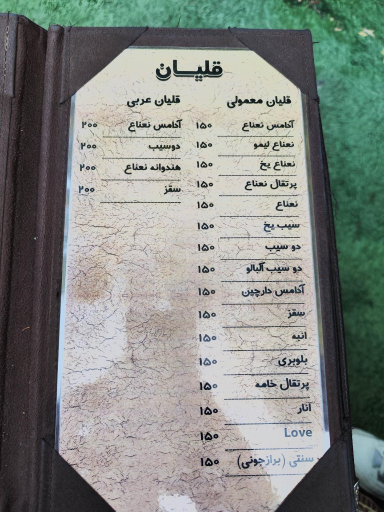 قلیان
قلیان معمولی
آدامس نعناع ۱۵۰
نعناع لیمو ۱۵۰
نعناع یخ ۱۵۰
پرتقال نعناع ۱۵۰
نعناع ۱۵۰
سیب یخ ۱۵۰
دو سیب ۱۵۰
دو سیب آلبالو ۱۵۰
آدامس دارچین ۱۵۰
سقز ۱۵۰
انبه ۱۵۰
بلوبری ۱۵۰
پرتقال خامه ۱۵۰
انار ۱۵۰
Love ۱۵۰
سنتی (برازجونی) ۱۵۰
قلیان عربی
آدامس نعناع ۲۰۰
دوسیب ۲۰۰
هندوانه نعناع ۲۰۰
سقز ۲۰۰